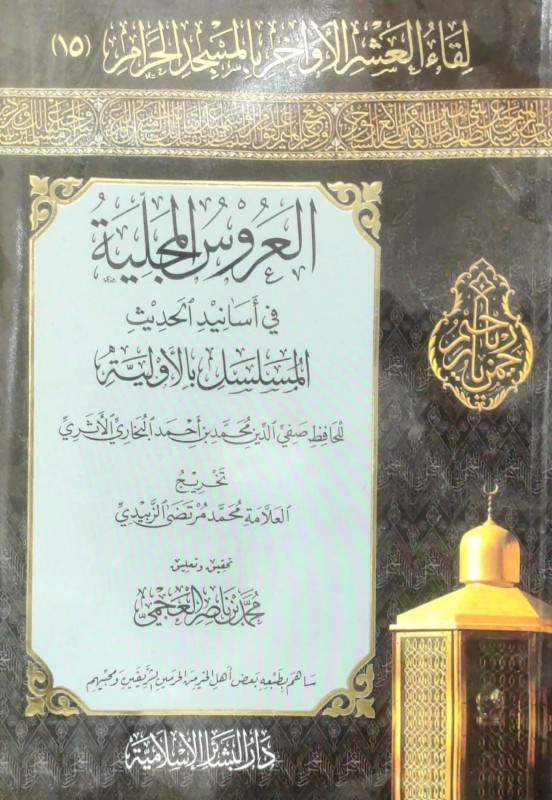 لِقَاءُ العَشْرِ الأَوَاخِرِ بِالمَسْجِدِ الحَرَامِ (١٥)
العَرُوسُ المَجَلِيَّةُ
فِي أَسَانِيْدِ الحَدِيْثِ
المُسَلْسَلِ بِالأَوَّلِيَّةِ
لِلْحَافِظِ صَفِيِّ الدِّينِ مُحَمَّدِ بْنِ أَحْمَدَ البُخَارِيِّ الأَثَرِيِّ
تَخْرِيجُ
العَلَّامَةِ مُحَمَّد مُرْتَضَى الزَّبِيدِيِّ
تحقيق وتعليق
مُحَمَّد بْن نَاصِر العَجْمِي
سَاهَمَ بِطَبْعِهِ بَعْضُ أَهْلِ الخَيْرِ مِنَ الحَرَمَيْنِ الشَّرِيفَيْنِ وَمُحِبِّيهِم
دَارُ البَشَائِرِ الإِسْلَامِيَّةِ